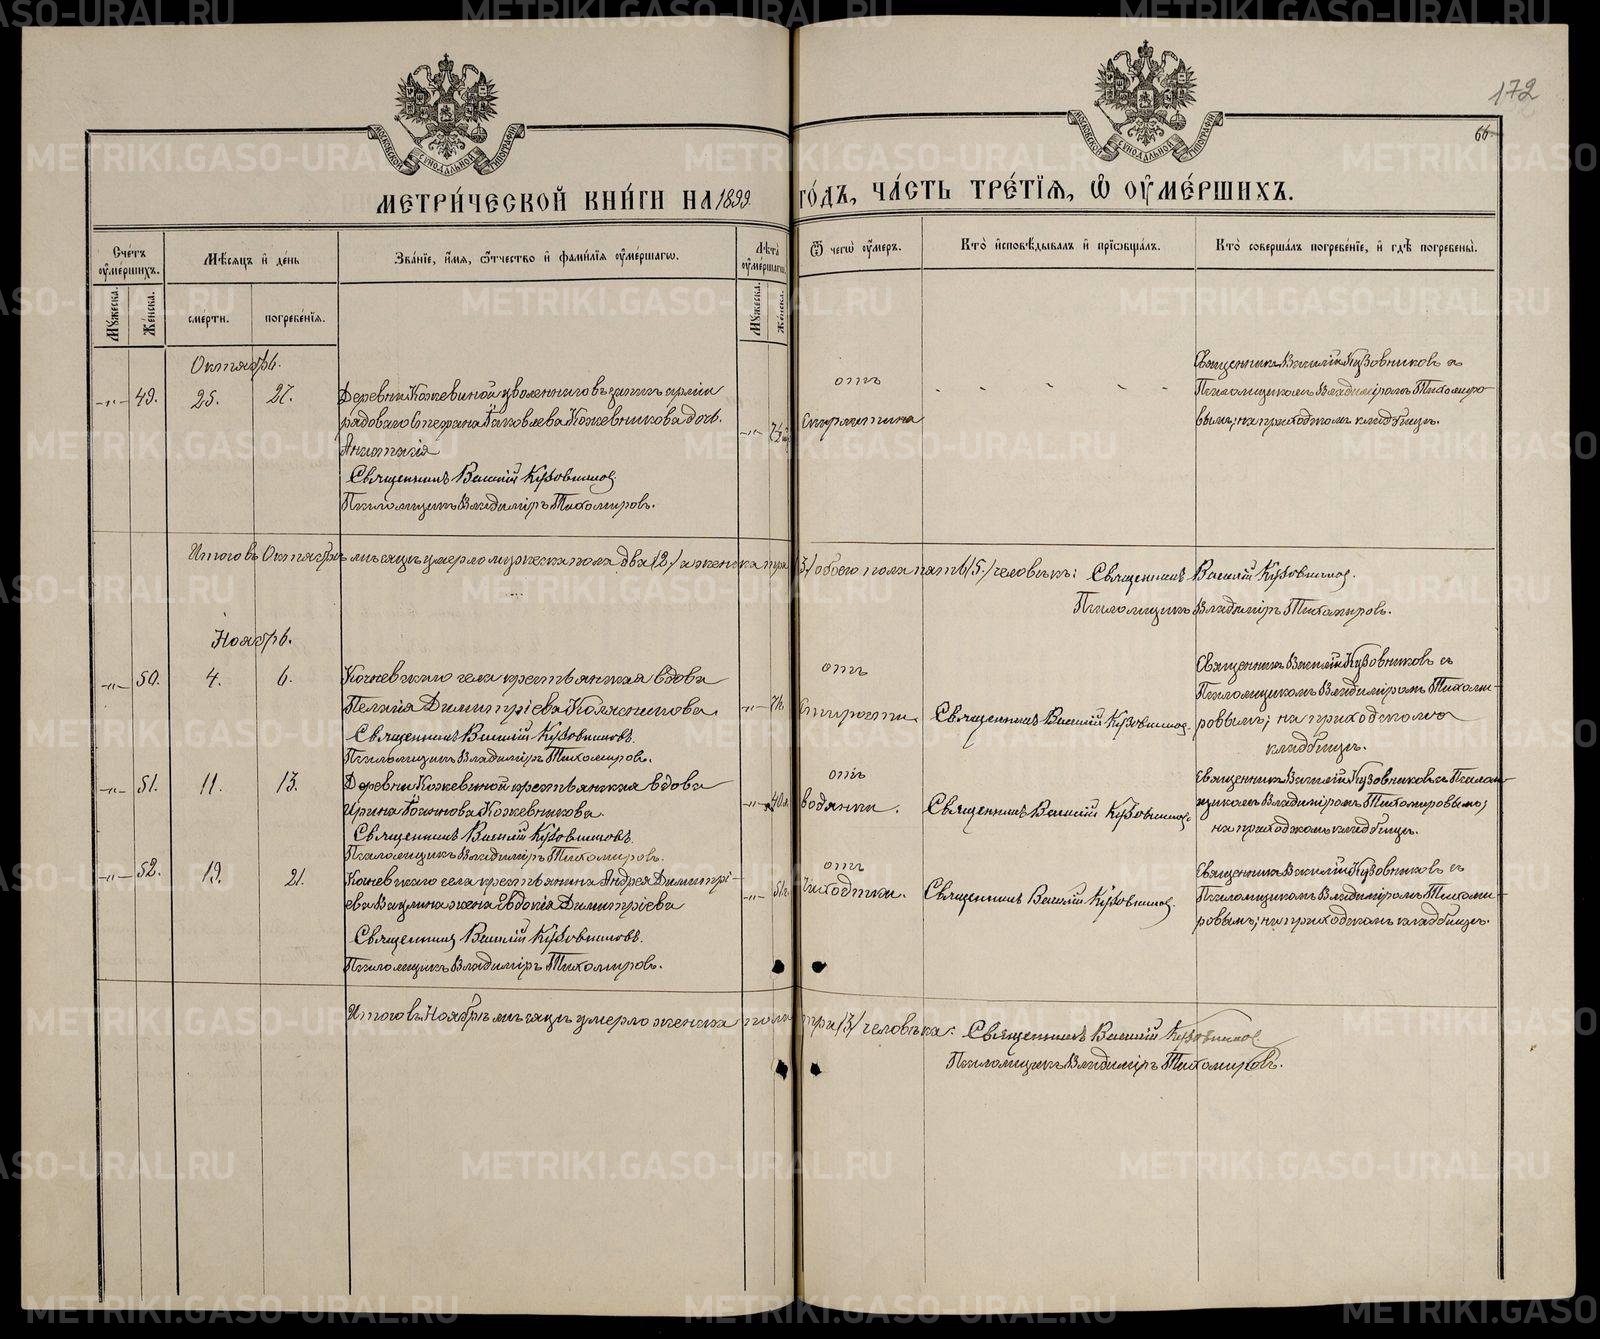 172
66
МОСКОВСКОЙ СѴНОДАЛЬНОЙ ТИПОГРАФІИ
МОСКОВСКОЙ СѴНОДАЛЬНОЙ ТИПОГРАФІИ
МЕТРИ́ЧЕСКОЙ КНИ́ГИ НА 1899 ГО́ДЪ, ЧА́СТЬ ТРЕ́ТІѦ, Ѽ ОУ҆МЕ́РШИХЪ.
Сче́тъ оу҆ме́ршихъ.
Мꙋ́жеска.
Же́нска.
Мѣ́сяцъ и҆ де́нь
сме́рти.
погребе́нїѧ.
Зва́нїе, и҆́мѧ, ѻ҆́тчество и҆ фами́лїѧ оу҆ме́ршагѡ.
Лѣ́та оу҆ме́ршагѡ.
Мꙋ́жеска.
Же́нска.
Ѿ чегѡ̀ оу҆́меръ.
Кто̀ и҆сповѣ́дывалъ и҆ прїѡбща́лъ.
Кто̀ соверша́лъ погребе́нїе, и҆ гдѣ̀ погребены̀.
Октябрь.
-„- 49. 25. 27.
Деревни Кожевиной уволеннаго въ запасъ арміи
рядоваго Стефана Іаковлева Кожевникова дочь
Анастасія
Священникъ Василій Кузовниковъ.
Псаломщикъ Владиміръ Тихомировъ.
-„-
отъ
скарлатина
Священникъ Василій Кузовниковъ съ
Псаломщикомъ Владиміромъ Тихомиро-
вымъ; на приходскомъ кладбищѣ.
Итого въ Октябрѣ мѣсяцѣ умерло мужеска пола два /2/ а женска три /3/ обоего пола пять /5/ человѣкъ: Священникъ Василій Кузовниковъ.
Псаломщикъ Владиміръ Тихомировъ.
Ноябрь.
-„- 50. 4. 6.
Кочневскаго села крестьянская вдова
Пелагія Димитріева Колясникова.
Священникъ Василій Кузовниковъ.
Псаломщикъ Владиміръ Тихомировъ.
-„-
отъ
старости.
Священникъ Василій Кузовниковъ.
Священникъ Василій Кузовниковъ съ
Псаломщикомъ Владиміромъ Тихоми-
ровымъ; на приходскомъ
кладбищѣ.
-„- 51. 11. 13.
Деревни Кожевиной крестьянская вдова
Ирина Кожевникова.
Священникъ Василій Кузовниковъ.
Псаломщикъ Владиміръ Тихомировъ.
-„- 40л.
отъ
водянки.
Священникъ Василій Кузовниковъ.
Священникъ Василій Кузовниковъ съ Псалом-
щикомъ Владиміромъ Тихомировымъ;
на приходскомъ кладбищѣ.
-„- 52. 19. 21.
Кочневскаго села крестьянина Андрея Димитрі-
ева жена Евдокія Димитріева
Священникъ Василій Кузовниковъ.
Псаломщикъ Владиміръ Тихомировъ.
-„- 51г.
отъ
чихотки.
Священникъ Василій Кузовниковъ.
Священникъ Василій Кузовниковъ съ
Псаломщикомъ Владиміромъ Тихоми-
ровымъ; на приходскомъ кладбищѣ.
Итого въ Ноябрѣ мѣсяцѣ умерло женска пола три /3/ человѣка: Священникъ Василій Кузовниковъ
Псаломщикъ Владиміръ Тихомировъ.
METRIKI.GASO-URAL.RU